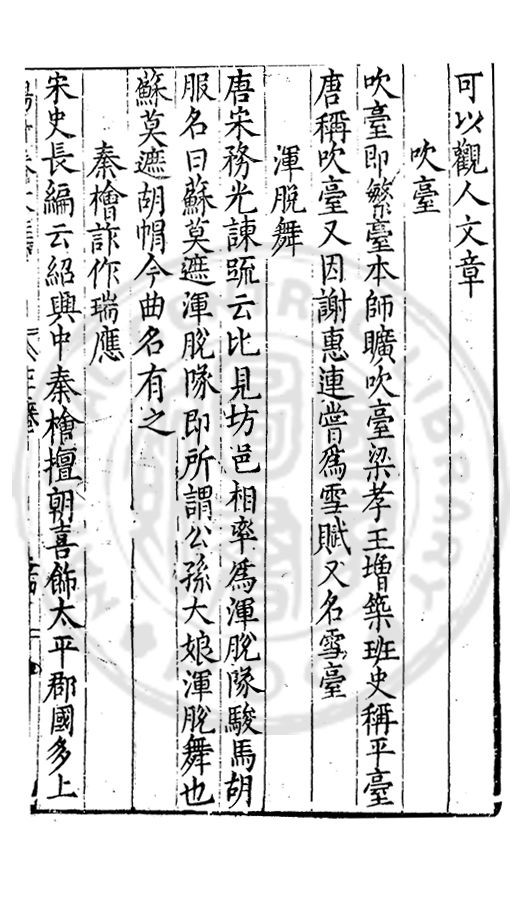 可以觀人文章
吹臺
吹臺即繁臺本師曠吹臺梁孝王增築班史稱平臺
唐稱吹臺又因謝惠連嘗爲雪賦又名雪臺
渾脫舞
唐宋務光諫䟽云比見坊邑相率爲渾脫隊駿馬胡
服名曰蘇莫遮渾脫隊即所謂公孫大娘渾脫舞也
蘇莫遮胡帽今曲名有之
秦檜詐作瑞應
宋史長編云紹興中秦檜擅朝喜飾太平郡國多上